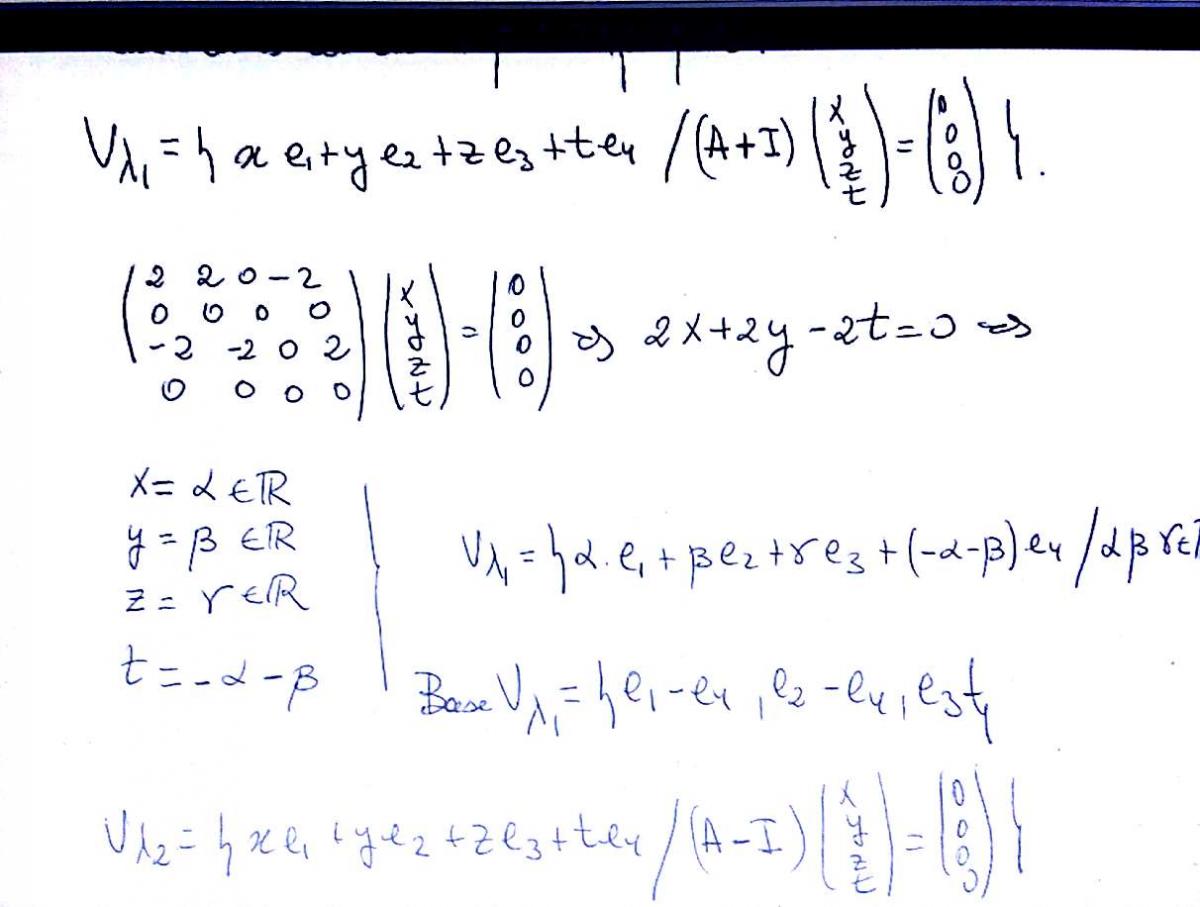 V_λ₁ = { x e₁ + y e₂ + z e₃ + t e₄ / (A+I) (x y z t) = (0 0 0 0) }.
(2 2 0 -2 / 0 0 0 0 / -2 -2 0 2 / 0 0 0 0) (x y z t) = (0 0 0 0) ⇔ 2x+2y-2t=0 ⇔
x = α ∈ ℝ
y = β ∈ ℝ
z = γ ∈ ℝ
t = -α - β
V_λ₁ = { α.e₁ + βe₂ + γe₃ + (-α-β)e₄ / α β γ ∈
Base V_λ₁ = { e₁-e₄, e₂-e₄, e₃ }
V_λ₂ = { x e₁ + y e₂ + z e₃ + t e₄ / (A-I) (x y z t) = (0 0 0 0) }